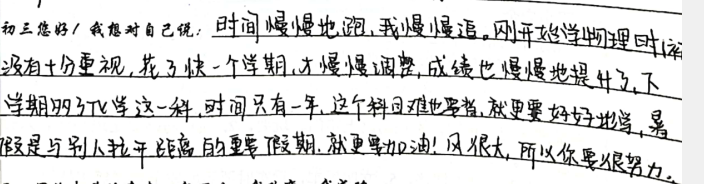 初三您好！我想对自己说：时间慢慢地跑，我慢慢追。刚开始学物理时，
没有十分重视，花了快一个学期，才慢慢调整，成绩也慢慢地提升了，下
学期多了化学这一科，时间只有一年，这个科目难也要学，就更要好好地学，暑
假是与别人拉开距离的重要假期，就更要加油！风很大，所以你要很努力。